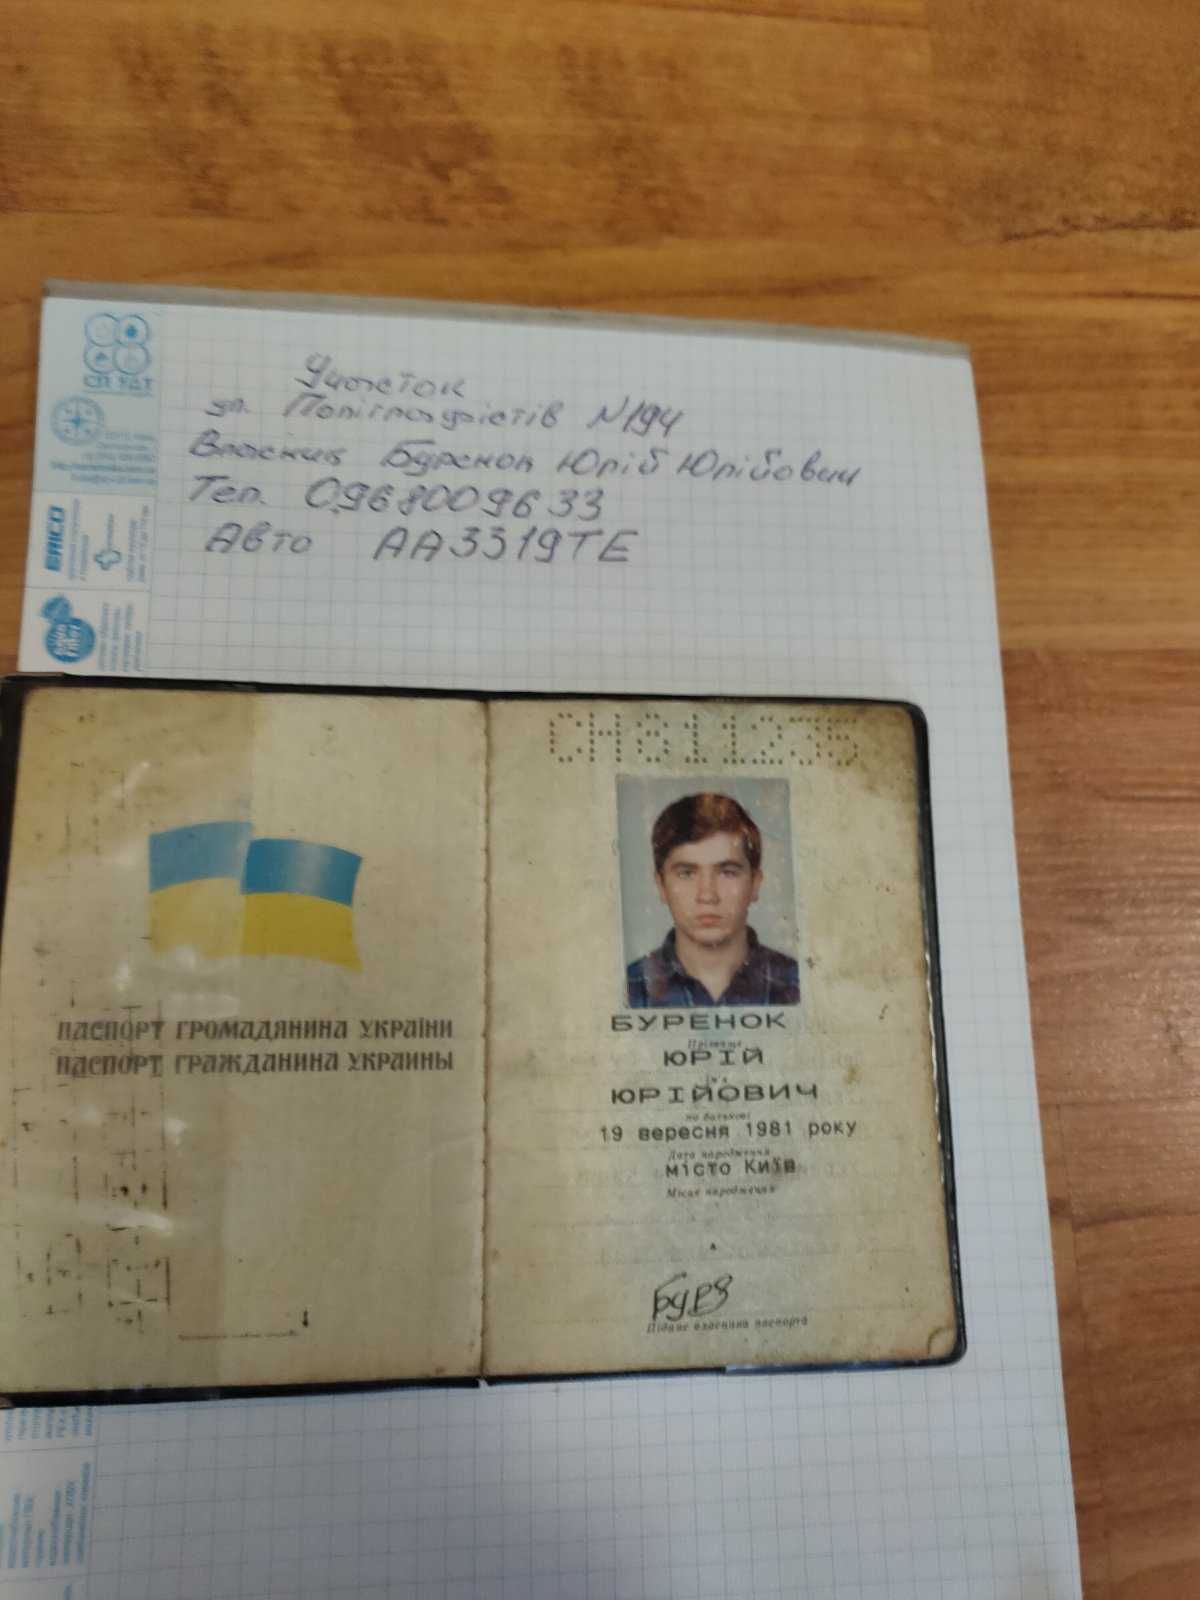 Участок
ул. Поліграфістів N194
Власник Буренок Юрій Юрійович
Тел. 0968009633
Авто АА3319ТЕ
СП УДТ
ERICO
СН811235
ПАСПОРТ ГРОМАДЯНИНА УКРАЇНИ
ПАСПОРТ ГРАЖДАНИНА УКРАИНЫ
БУРЕНОК
Прізвище
ЮРІЙ
Ім'я
ЮРІЙОВИЧ
по батькові
19 вересня 1981 року
Дата народження
місто Київ
Місце народження
Підпис власника паспорта